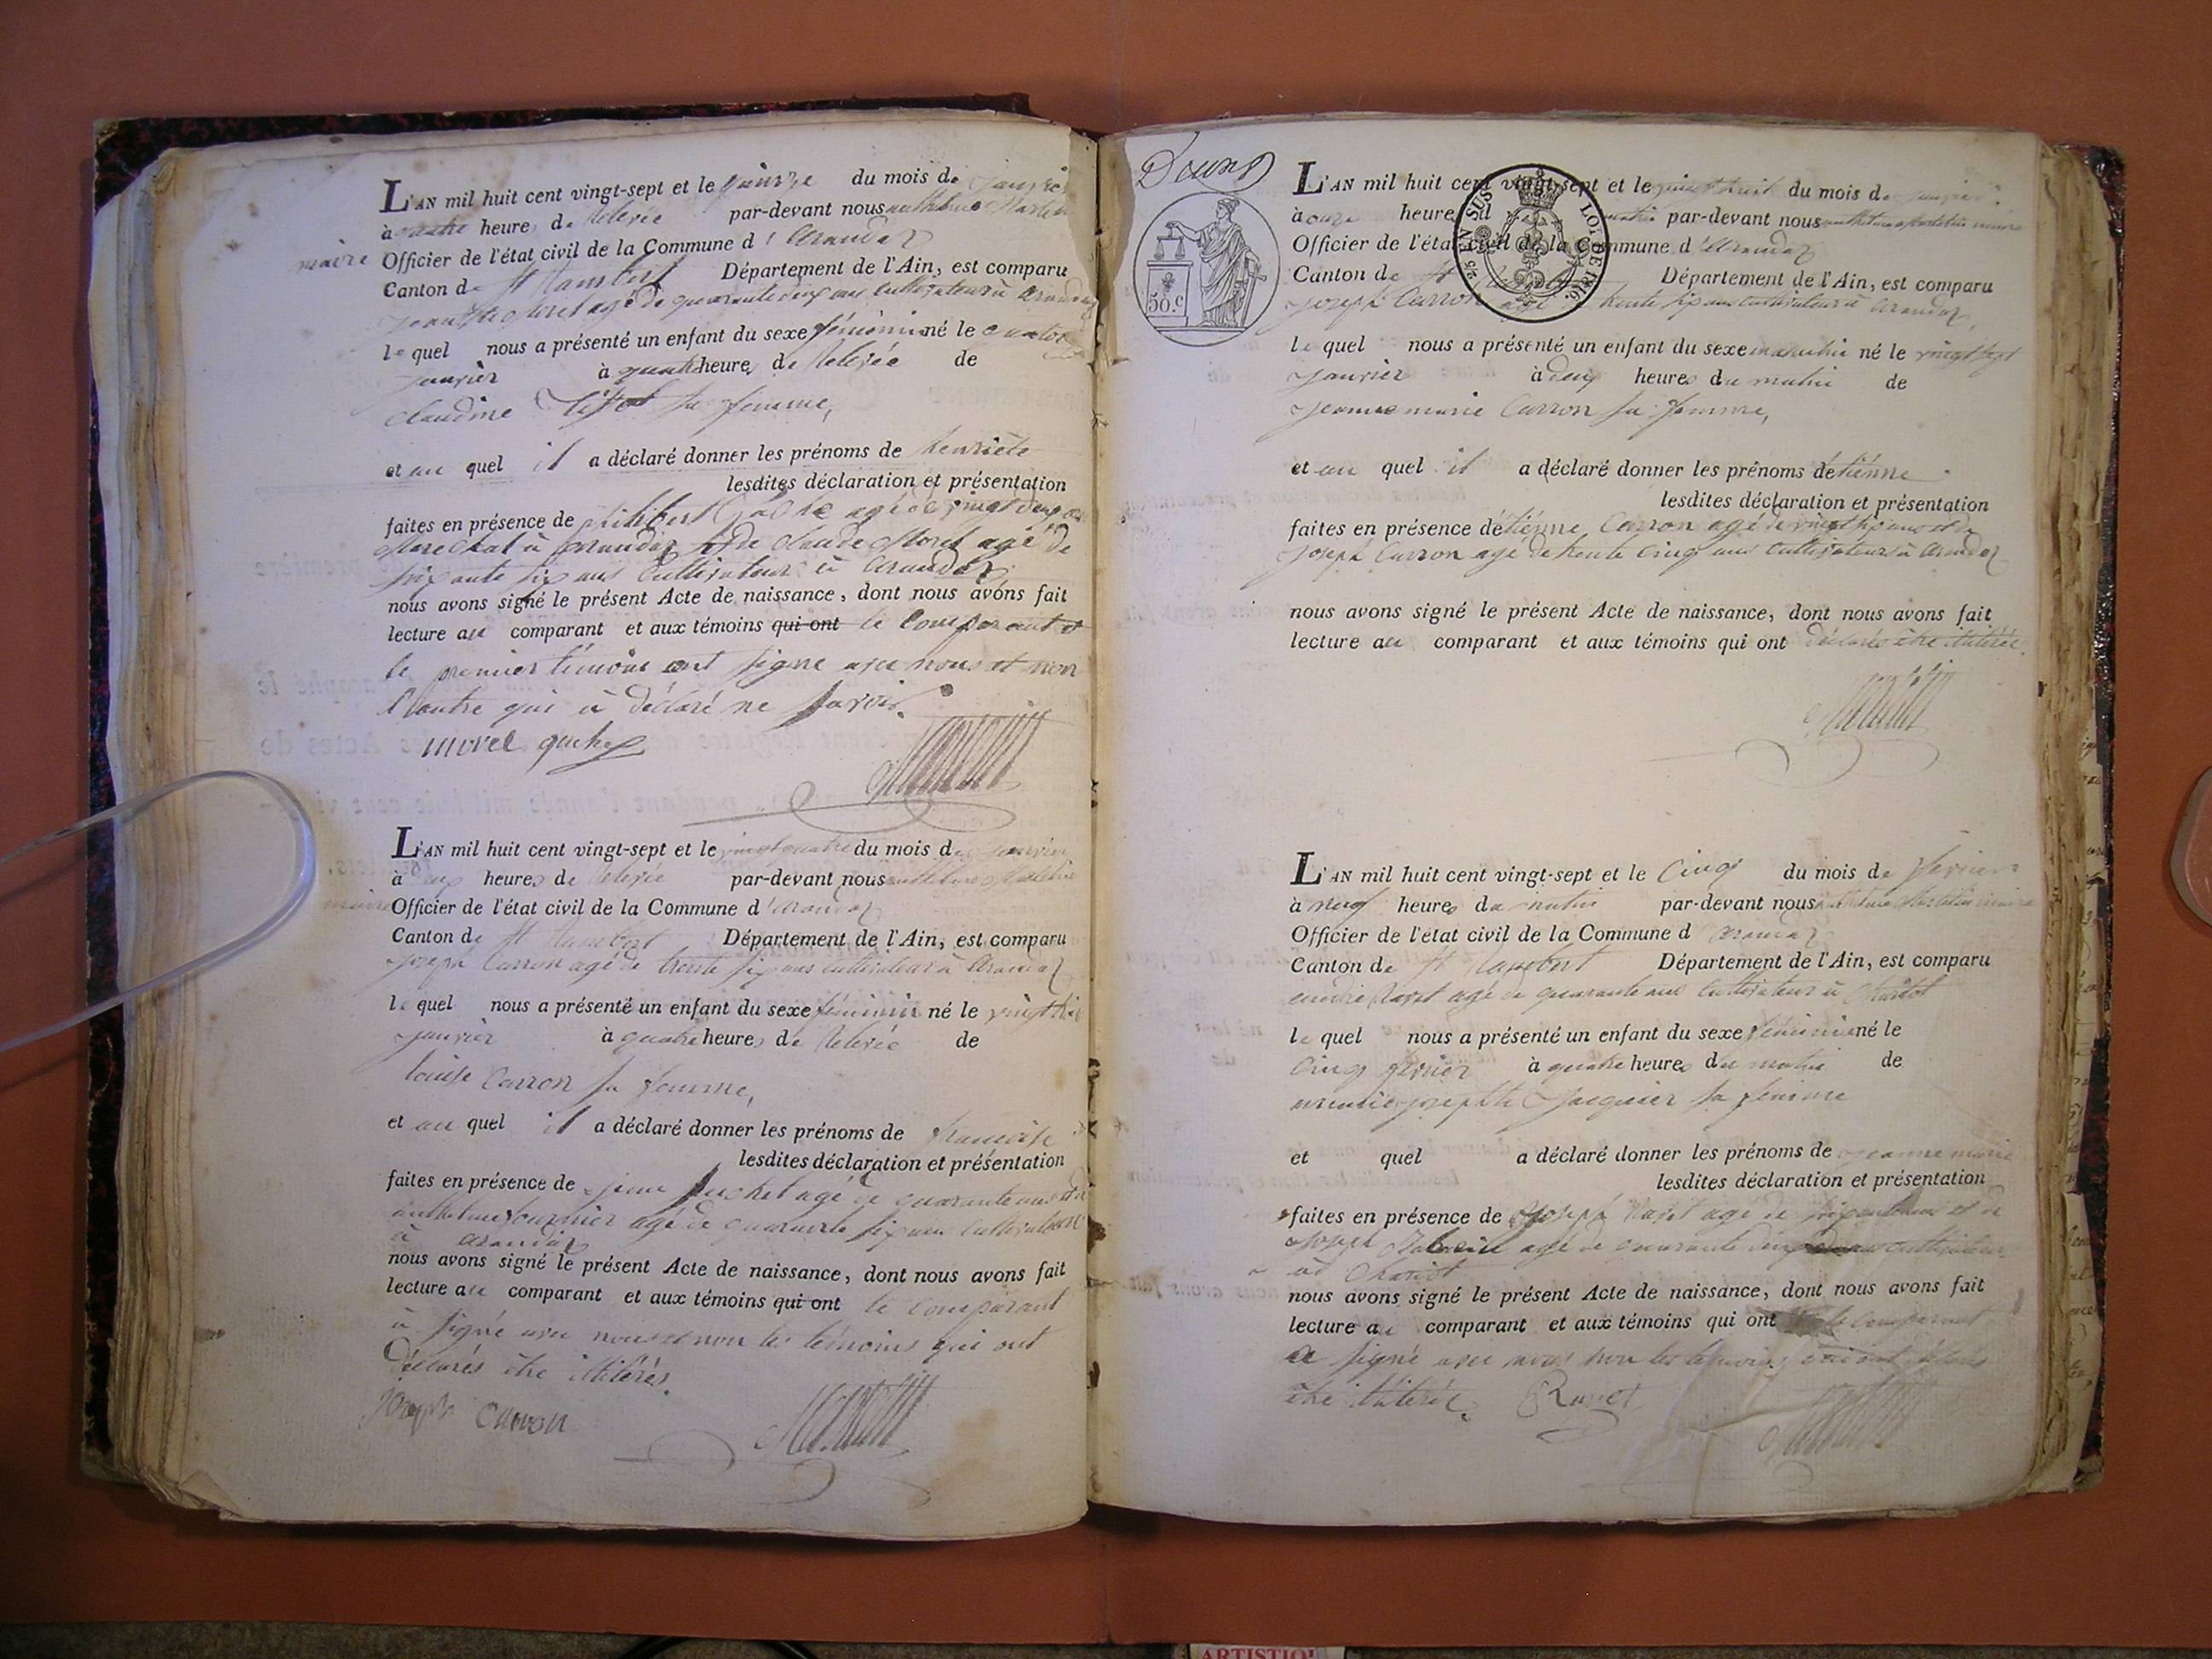 L'AN mil huit cent vingt-sept et le quinze du mois de janvier
à quatre heures de Relevée par-devant nous anthelme Martelin
maire Officier de l'état civil de la Commune d'Arandaz
Canton de St Rambert Département de l'Ain, est comparu
Morel agé de quarante cinq ans cultivateur à arandaz
lequel nous a présenté un enfant du sexe féminin né le quatorze
janvier à quatre heures de Relevée de
claudine sa femme,
et au quel il a déclaré donner les prénoms de henriète
lesdites déclaration et présentation
faites en présence de philibert agé de vingt deux ans
Marechal à arandaz et de claude Morel agé de
soixante six ans Cultivateur à Arandaz
nous avons signé le présent Acte de naissance, dont nous avons fait
lecture au comparant et aux témoins qui ont le Comparant et
le premier témoins ont signé avec nous et non
l'autre qui à déclaré ne savoir.
morel
L'AN mil huit cent vingt-sept et le vingt quatre du mois de janvier
à heures de relevée par-devant nous anthelme Martelin
maire Officier de l'état civil de la Commune d'arandaz
Canton de St Rambert Département de l'Ain, est comparu
joseph Carron agé de trente six ans cultivateur à Arandaz
lequel nous a présenté un enfant du sexe féminin né le vingt trois
janvier à quatre heures de Relevée de
louise Carron sa femme,
et au quel il a déclaré donner les prénoms de francoise
lesdites déclaration et présentation
faites en présence de jean agé de quarante ans et d'
anthelme fournier agé de quarante six ans Cultivateurs
à arandaz
nous avons signé le présent Acte de naissance, dont nous avons fait
lecture au comparant et aux témoins qui ont le comparant
à signé avec nous et non les témoins qui ont
Déclarés être illitérés.
joseph Carron
50.c
EN SUS
LOI DE 1816.
L'AN mil huit cent vingt-sept et le vingt huit du mois de janvier
à onze heures du matin par-devant nous anthelme Martelin maire
Officier de l'état civil de la Commune d'Arandaz
Canton de St Département de l'Ain, est comparu
joseph Carron agé trente six ans cultivateur à arandaz,
lequel nous a présenté un enfant du sexe masculin né le vingt sept
janvier à deux heures du matin de
jeanne marie Carron sa femme,
et au quel il a déclaré donner les prénoms d'étiénne
lesdites déclaration et présentation
faites en présence d'étiénne Carron agé de vingt six ans et de
joseph Carron agé de trente cinq ans Cultivateurs à Arandaz
nous avons signé le présent Acte de naissance, dont nous avons fait
lecture au comparant et aux témoins qui ont déclarés être illitérés.
L'AN mil huit cent vingt-sept et le Cinq du mois de fevrier
à neuf heures du matin par-devant nous anthelme Martelin maire
Officier de l'état civil de la Commune d arandaz
Canton de St Rambert Département de l'Ain, est comparu
andré Ravet agé de quarante ans Cultivateur à Charvot
lequel nous a présenté un enfant du sexe féminin né le
Cinq fevrier à quatre heures du matin de
josephte Jacquier sa femme
et quel a déclaré donner les prénoms de jeanne marie
lesdites déclaration et présentation
faites en présence de joseph Ravet agé de ans et de
joseph agé de quarante cinq cultivateurs
nous avons signé le présent Acte de naissance, dont nous avons fait
lecture au comparant et aux témoins qui ont le comparant
a signé avec nous non les témoins qui ont déclarés
être illitérés. Ravet
ARTISTIQ